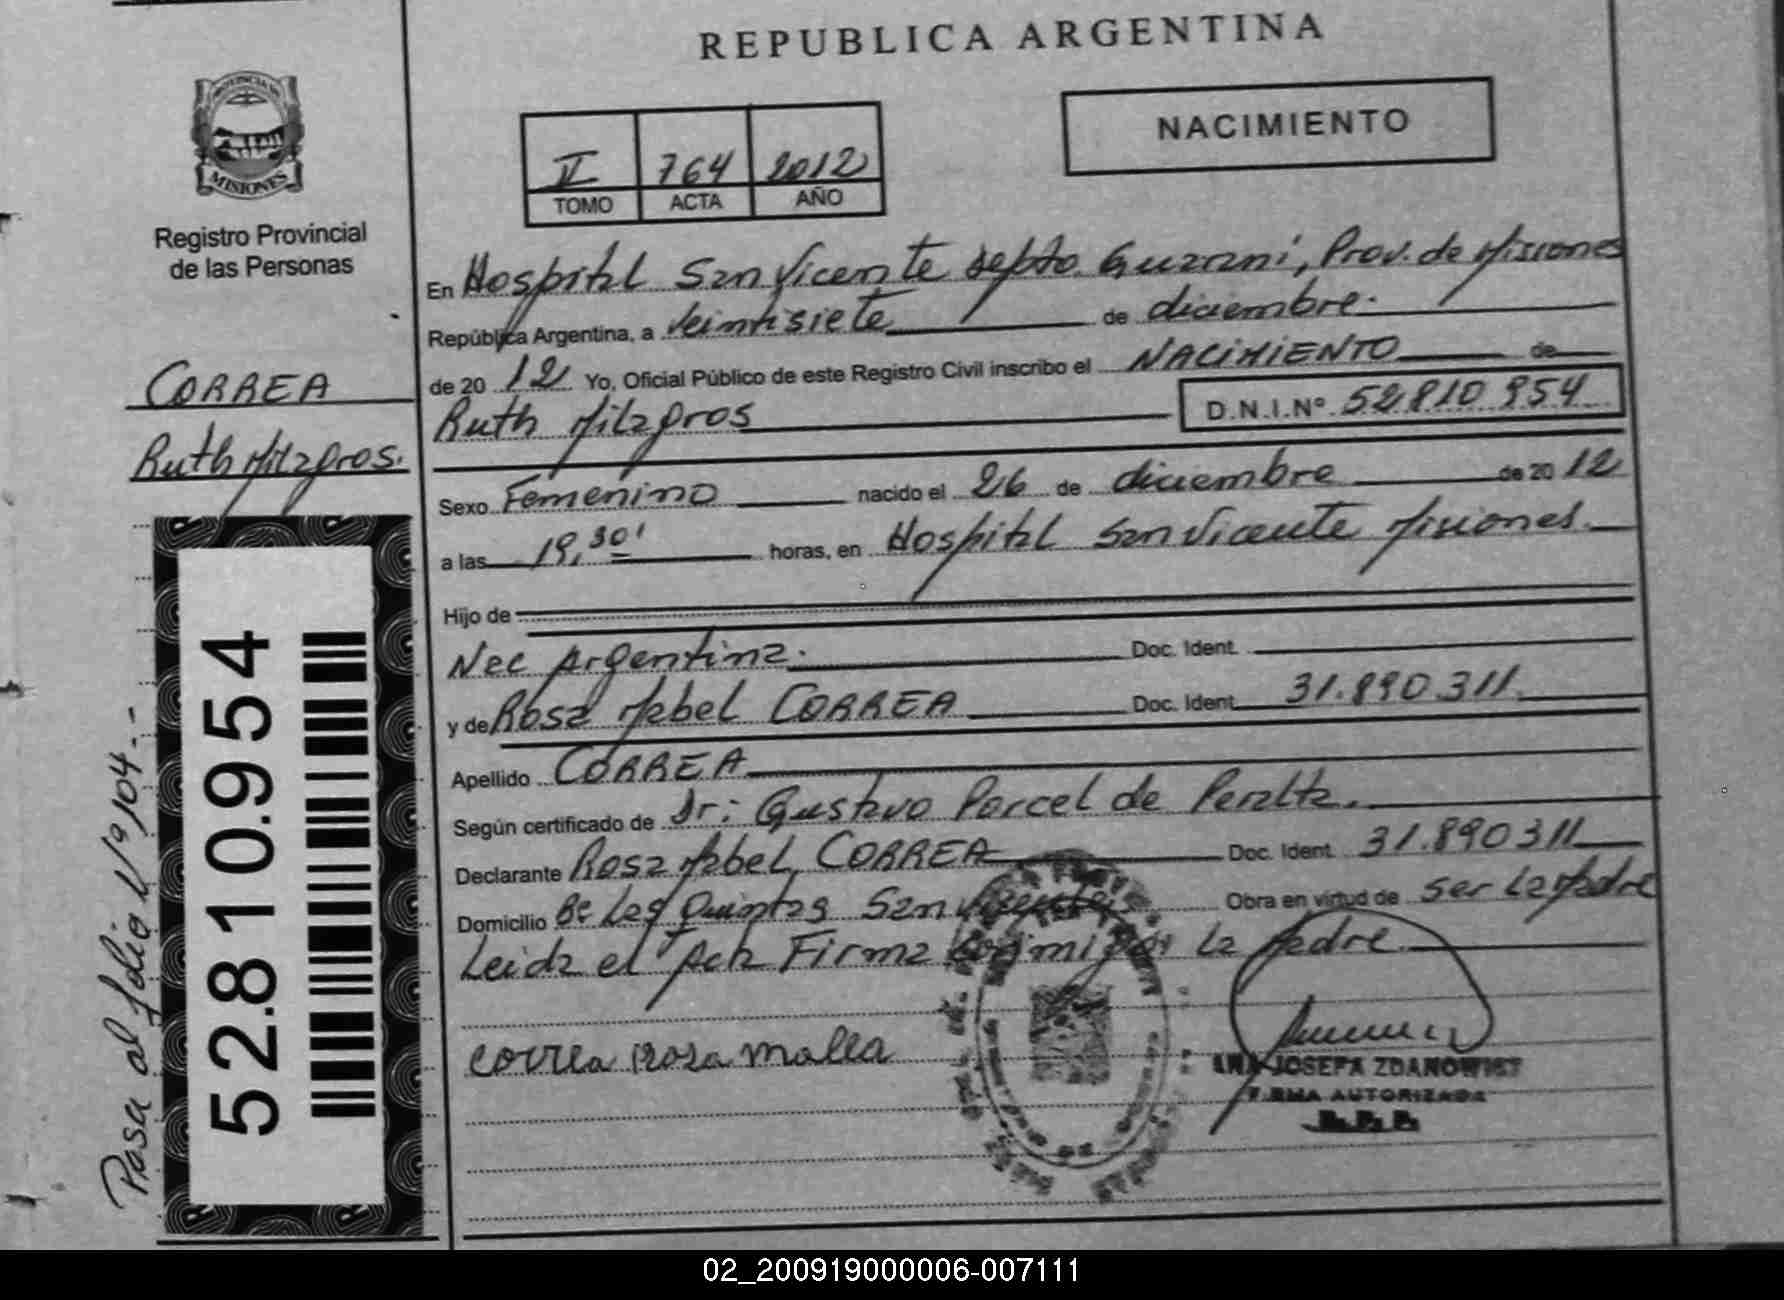 REPUBLICA ARGENTINA
PROVINCIA DE
MISIONES
Registro Provincial
de las Personas
NACIMIENTO
II 764 2012
TOMO ACTA AÑO
En Hospital San Vicente depto. Guaraní, Prov. de Misiones
República Argentina, a veintisiete de diciembre.
de 20 12 Yo, Oficial Público de este Registro Civil inscribo el NACIMIENTO de
Ruth Milagros D.N.I.Nº 52810954
CORREA
Ruth Milagros.
Sexo Femenino nacido el 26 de diciembre de 20 12
a las 19,30' horas, en Hospital San Vicente Misiones.
Hijo de
Nac Argentina. Doc. Ident.
y de Rosa Mabel CORREA Doc. Ident. 31.890.311.
Apellido CORREA
Según certificado de Dr: Gustavo Porcel de Peralta.
Declarante Rosa Mabel CORREA Doc. Ident. 31.890311
Domicilio Bº Las Quintas San Vicente Obra en virtud de ser la Madre
Leida el Acta Firma conmigo la Madre
correa Rosa
ANA JOSEFA ZDANOWIST
FIRMA AUTORIZADA
R.P.P.
52.810.954
Pasa al folio Nº 104.-
02_200919000006-007111